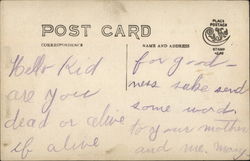 POST CARD
CORRESPONDENCE
NAME AND ADDRESS
PLACE POSTAGE
STAMP
Hello Kid
are you
dead or alive
if alive
for good-
ness sake send
some word
to your mother
and me.